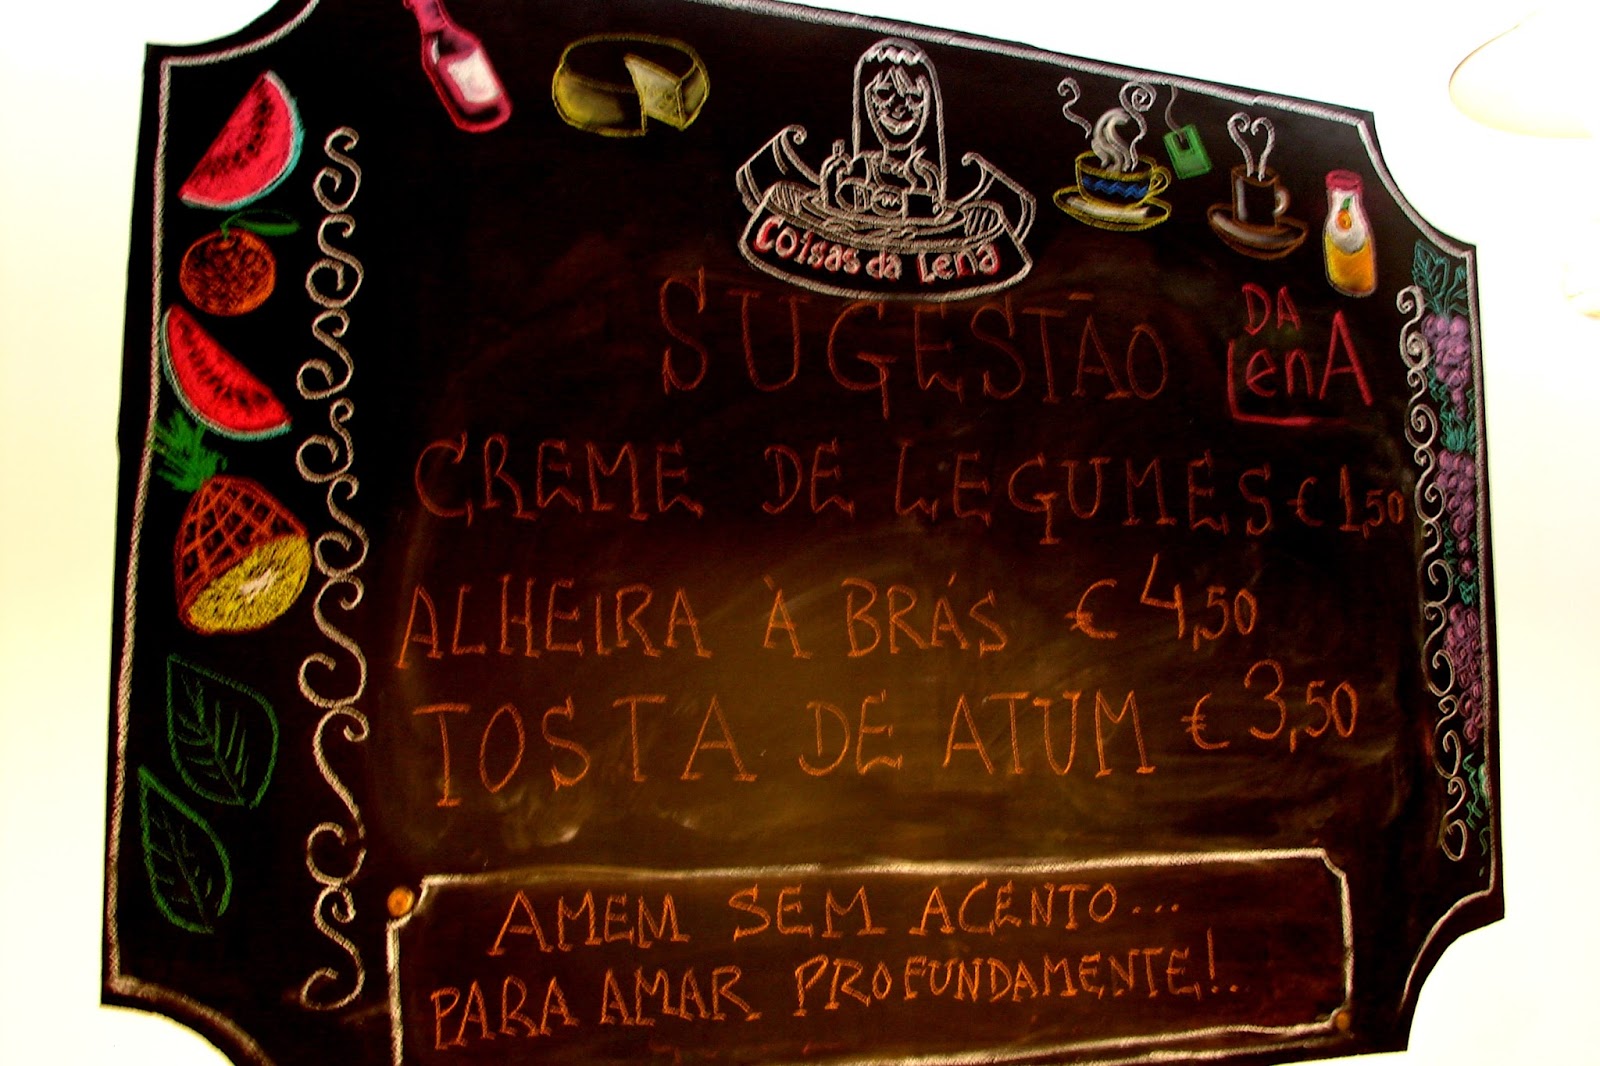 Coisas da Lena
SUGESTÃO DA LenA
CREME DE LEGUMES € 1,50
ALHEIRA À BRÁS € 4,50
TOSTA DE ATUM € 3,50
AMEM SEM ACENTO...
PARA AMAR PROFUNDAMENTE!.